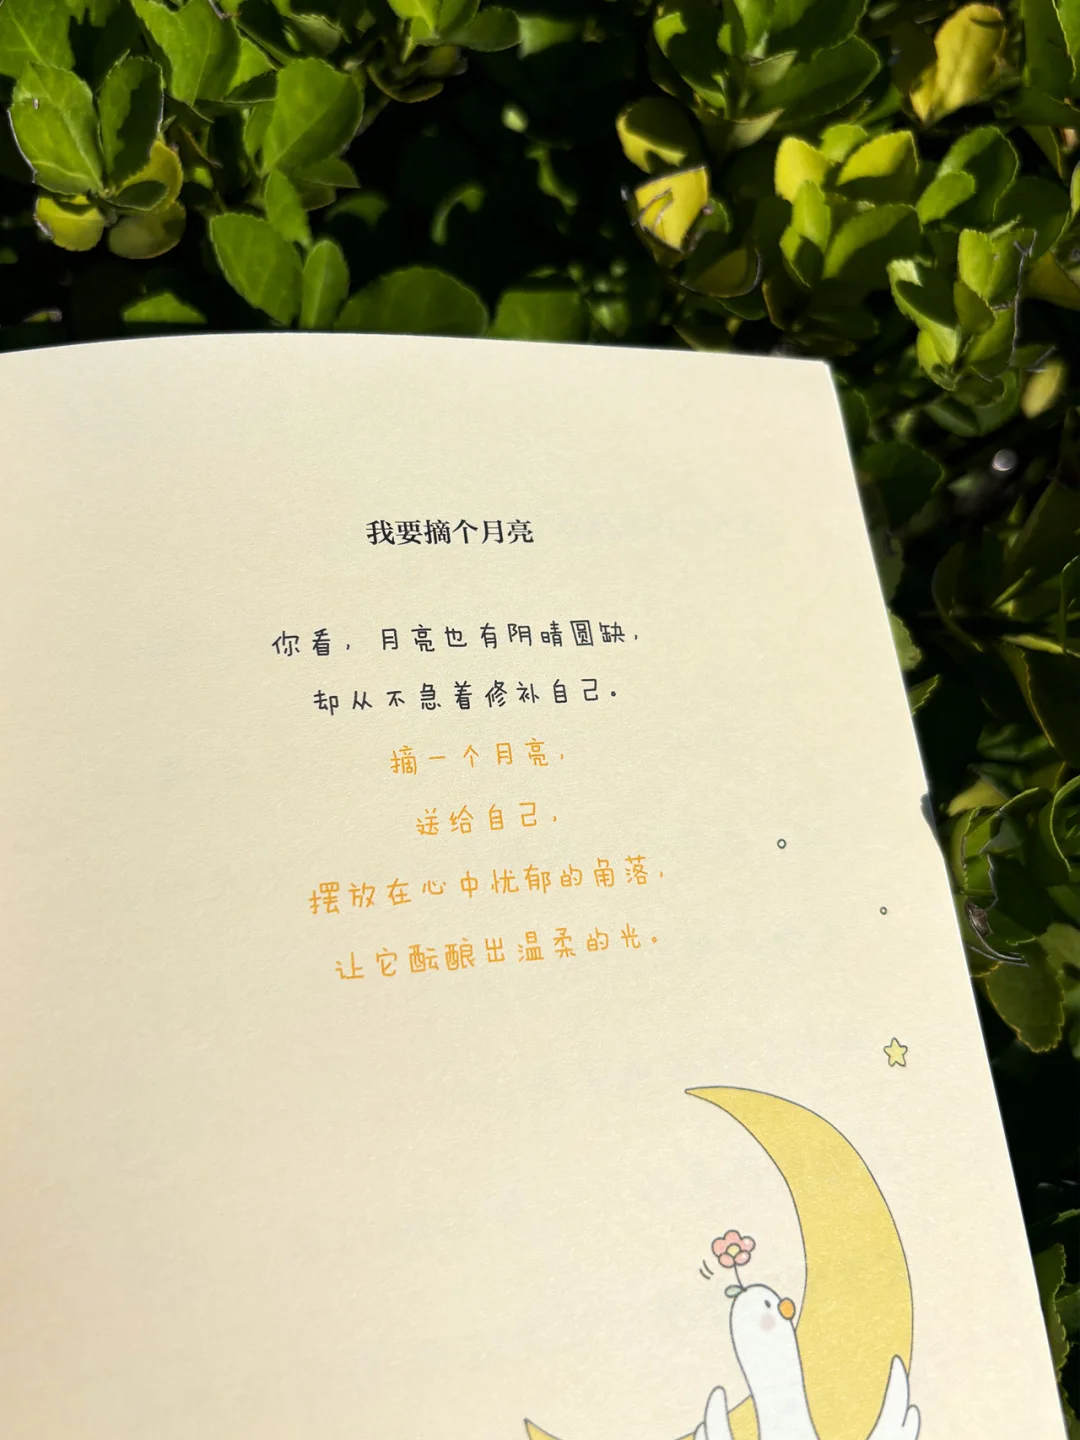 我要摘个月亮
你看，月亮也有阴晴圆缺，
却从不急着修补自己。
摘一个月亮，
送给自己，
摆放在心中忧郁的角落，
让它酝酿出温柔的光。